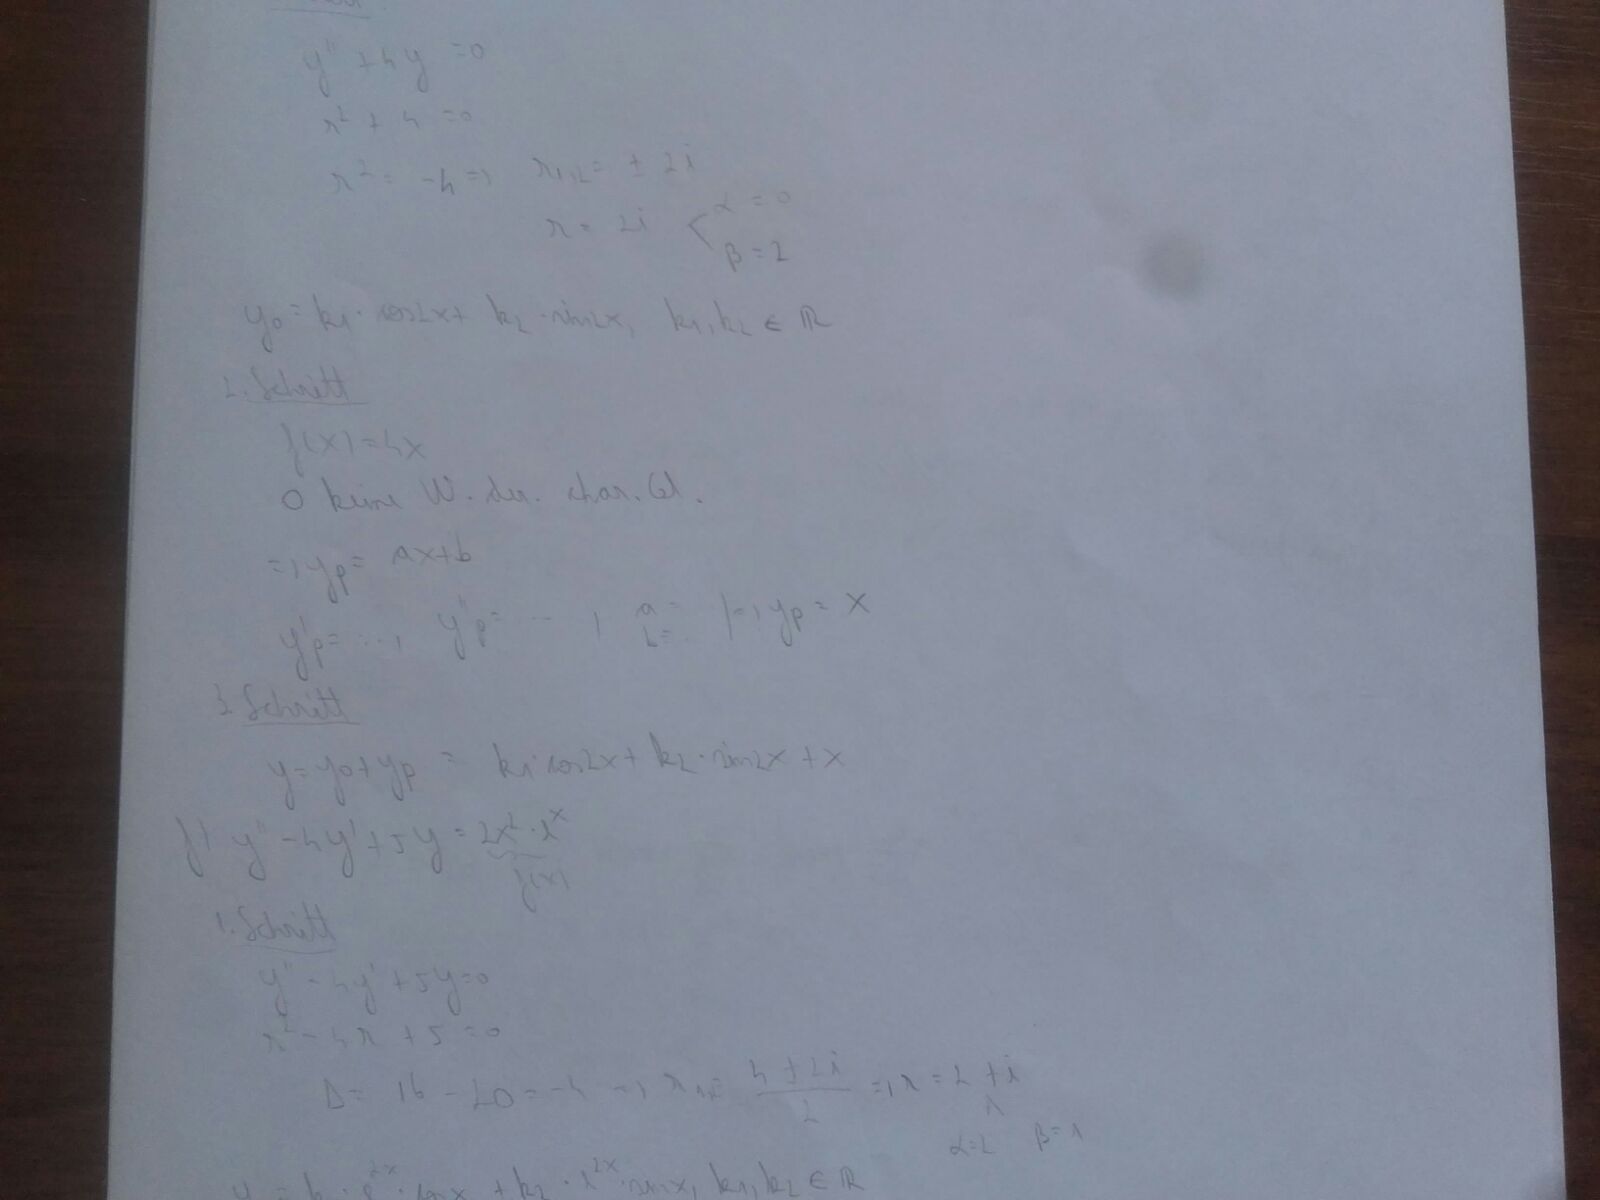 y'' + 4y = 0
r² + 4 = 0
r² = -4 => r₁,₂ = ± 2i
r = 2i < α = 0
β = 2
y₀ = k₁ · cos2x + k₂ · sin2x, k₁, k₂ ∈ ℝ
2. Schritt
f(x) = 4x
0 keine W. der. char. Gl.
=> yp = ax+b
y'p = ..., y''p = ... , a = b = | => yp = x
3. Schritt
y = y₀ + yp = k₁ cos2x + k₂ · sin2x + x
f) y'' - 4y' + 5y = 2x² · e^x
f(x)
1. Schritt
y'' - 4y' + 5y = 0
r² - 4r + 5 = 0
Δ = 16 - 20 = -4 => r₁,₂ = (4 ± 2i)/2 => r = 2 + i
α=2 β=1
y₀ = k₁ · e^2x · cosx + k₂ · e^2x · sinx, k₁, k₂ ∈ ℝ